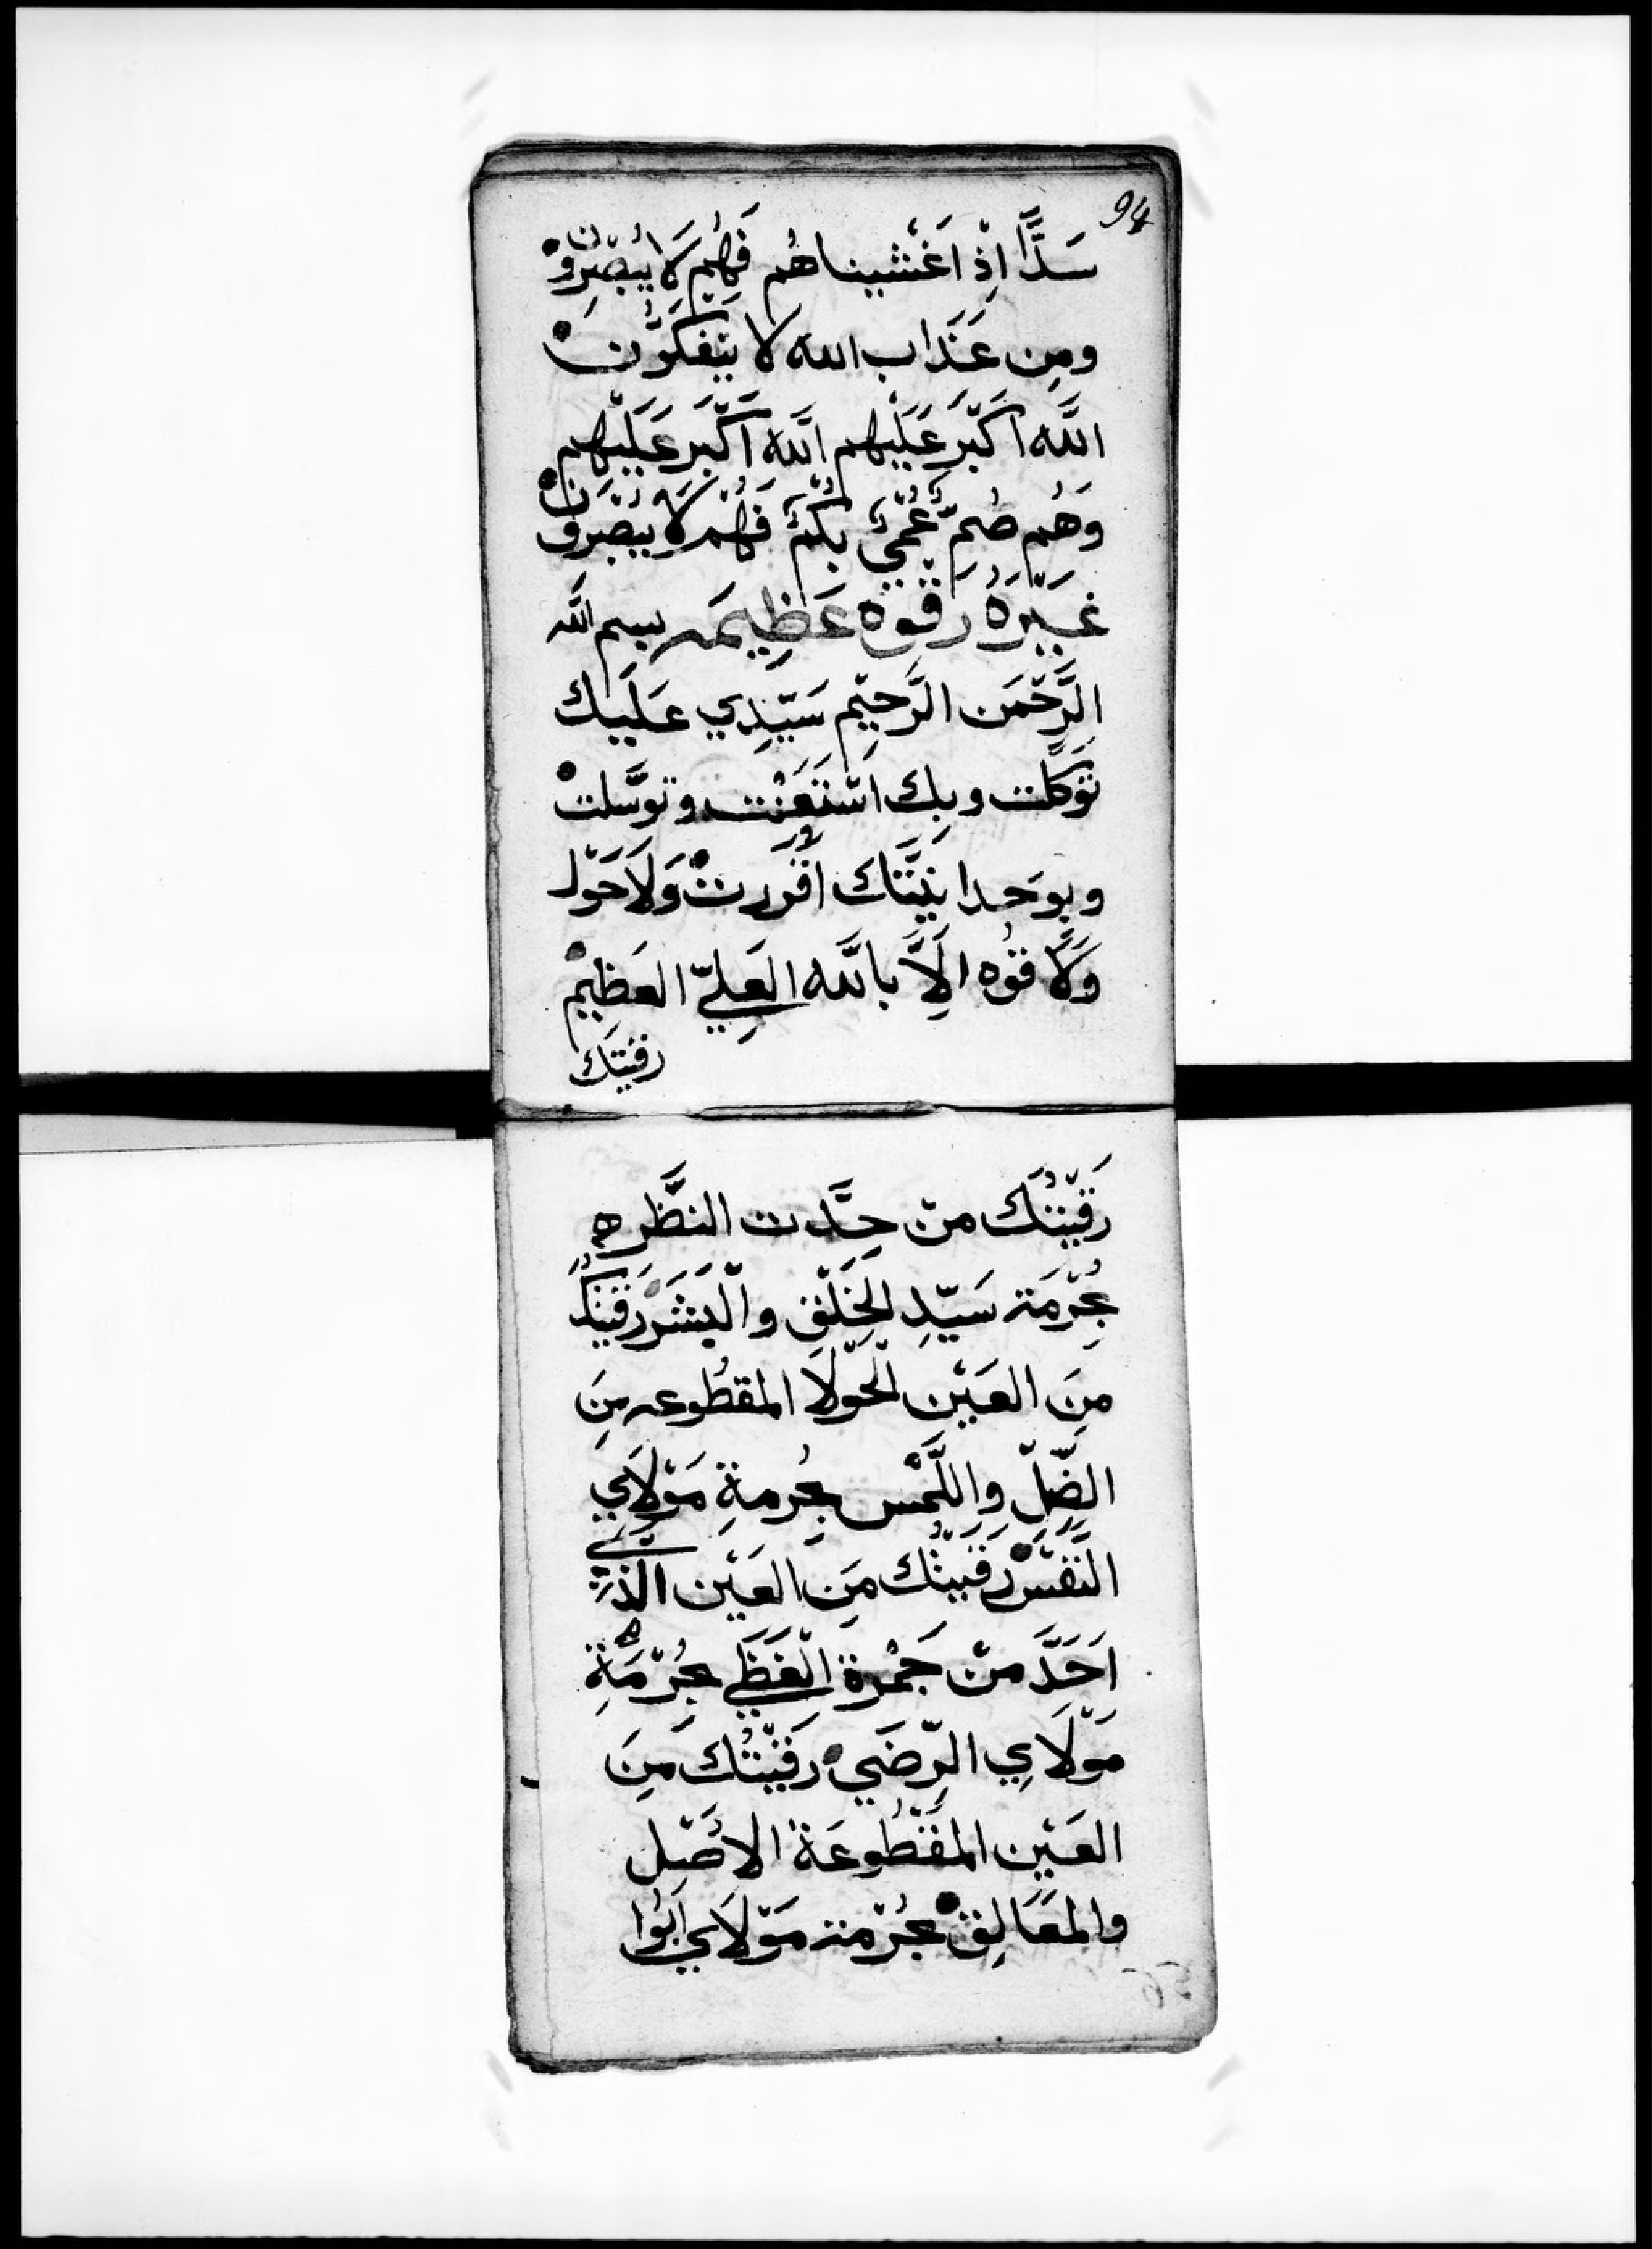 94
سَدًّا اِذْ اَغْشيناهُم فَهُم لَا يُبْصِرُوْن
ومِن عَذَاب الله لا يتفكرَّون
اللَّه اَكْبَر عَلَيْهم اللَّه اَكْبَر عَلَيْهم
وَهُم صُمّ عُمْيٌ بُكْمٌ فَهُم لَا يُبْصِرون
غَيْرهُ رَقْوَه عَظِيمَه بسم الله
الرَّحْمَن الرَّحِيْم سَيّدِي عَلَيك
تَوَكَّلت وبِك اسْتَعَنْت وتوسَّلت
وبوَحدانيَّتَك اَقْررت وَلَا حَوْل
وَلَا قوُه اِلَّا باللَّه العَلِيّ العَظِيْم
رقيتَك
رَقَيْتُك منْ حِدَّت النظَّره
بحُرْمَة سَيّدِ الخَلْق والْبَشَر رَقَيتَكُ
مِنَ العَيْن الْحَوْلَا المقطُوعه مِنَ
الضِّلّ واللَّمْس بحُرمةِ مَوْلَاي
النَفَسْ رَقَيْتُك مِنَ العَيْن الذي
اَحَدَّ منْ جَمْرة الْغَظَى بحُرْمَةِ
مَوْلَاي الرِّضَي رَقَيْتُك مِنَ
العَيْن المَقْطُوعَة الاَصْل
والمعَالِق بحُرْمة مَوْلَاي ابُوا